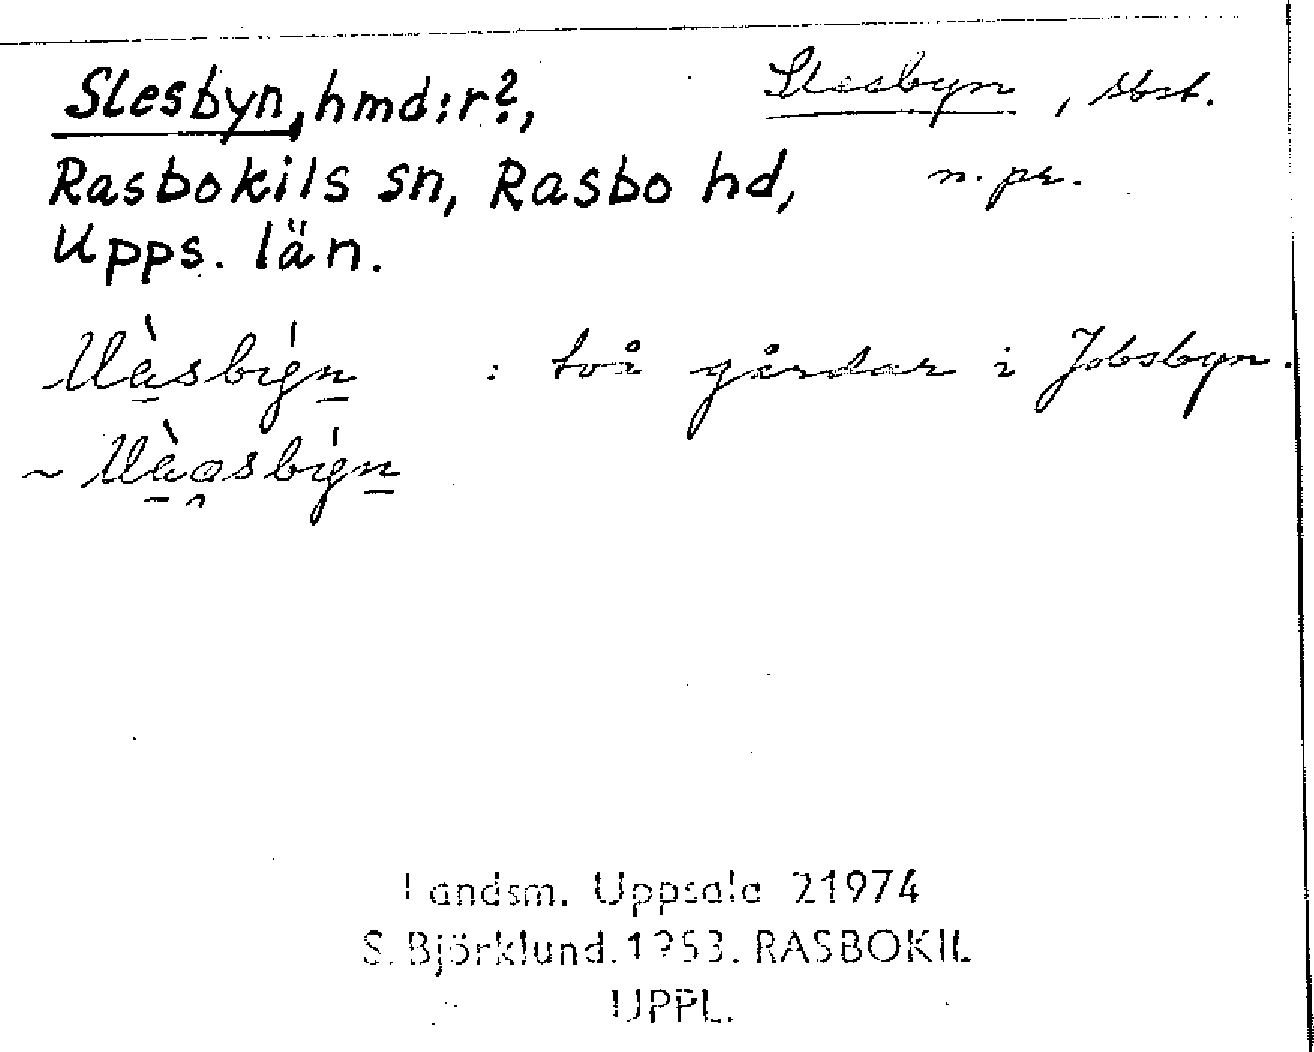 Slesbyn, hmd:r?,
Slesbyn, sbst.
Rasbokils sn, Rasbo hd,
n. pr.
Upps. län.
: två gårdar i Jobsbyn.
~
Landsm. Uppsala 21974
S. Björklund. 1953. RASBOKIL
UPPL.